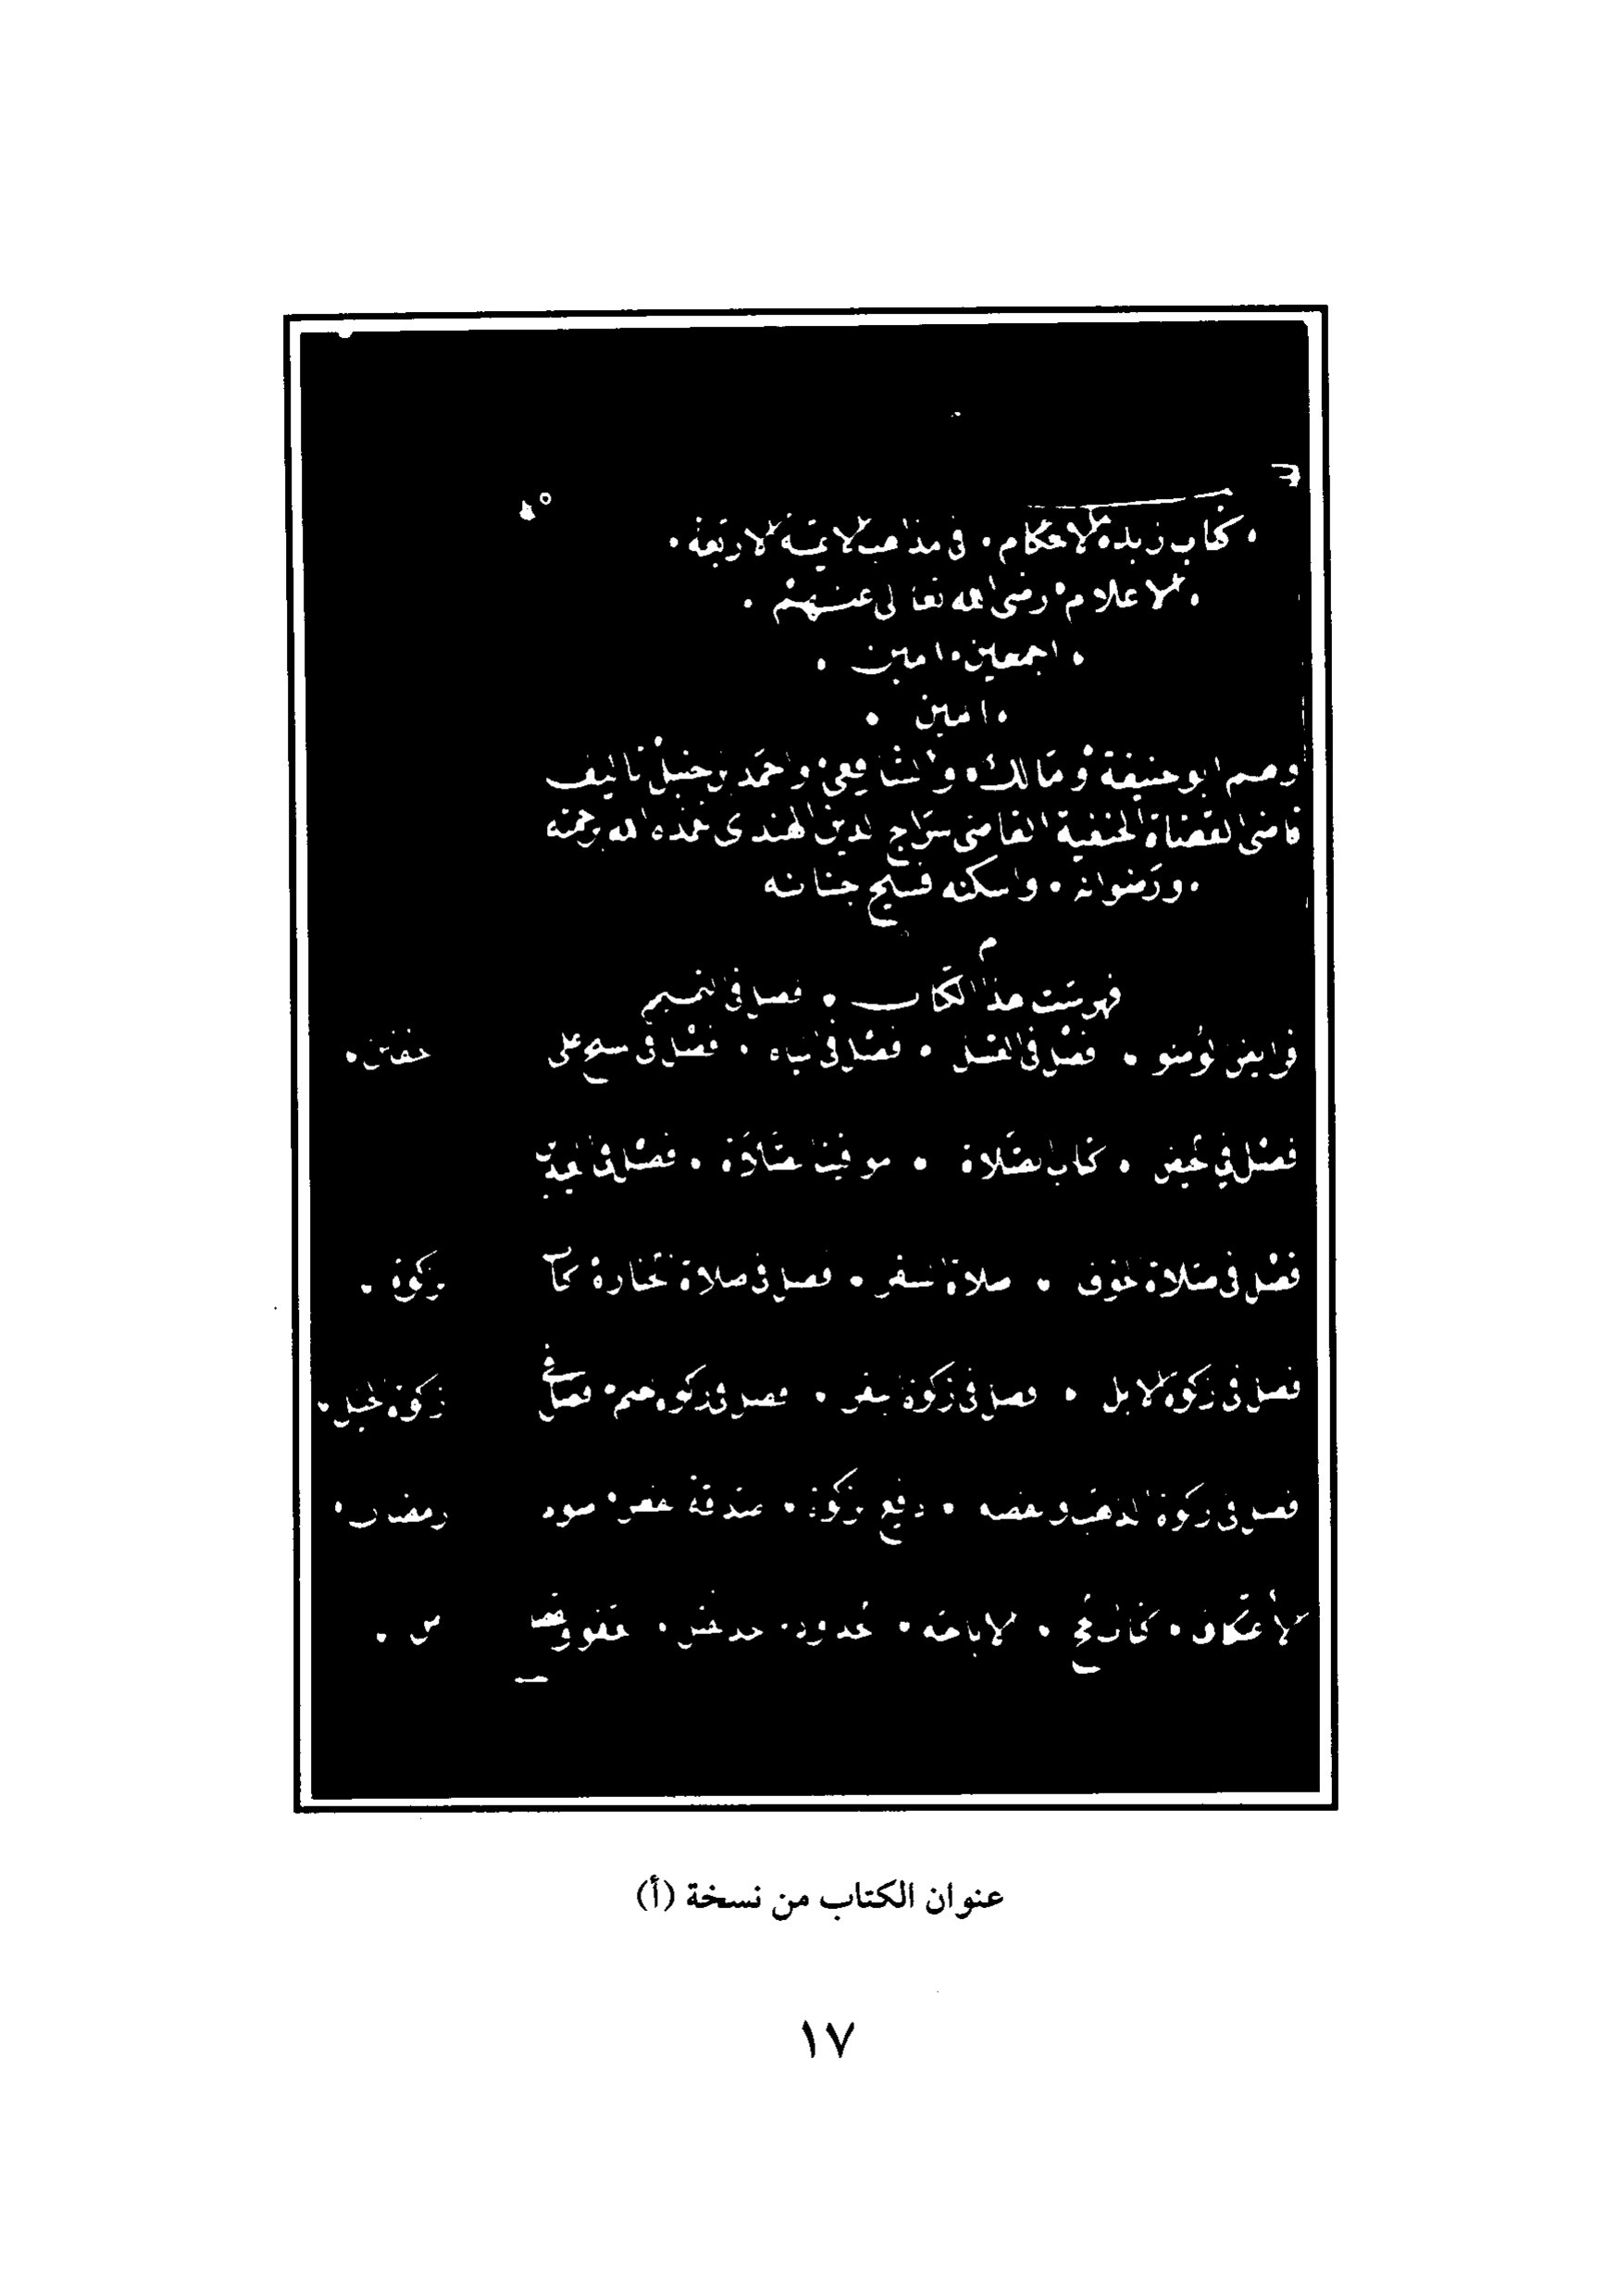 كتاب زبدة الاحكام • في مذاهب الايمة الاربعة •
• الاعلام • رضي الله تعالى عنهم •
• اجمعين • امين •
• امين •
وهم ابو حنيفة ومالك والشافعي واحمد بن حنبل تاليف
قاضي القضاة الحنفية القاضي سراج الدين الهندي تغمده الله برحمته
• ورضوانه • واسكنه فسيح جنانه
فهرست هذا الكتاب • فصل في التيمم
فرايض الوضو • فصل في الغسل • فصل في المياه • فصل في مسح على الخفين •
فصل في الحيض • كتاب الصلاة • مواقيت الصلاة • فصل في
فصل في صلاة الخوف • صلاة السفر • فصل في صلاة الجنازة كتاب الزكوة •
فصل في زكوة الابل • فصل في زكوة البقر • فصل في زكوة الغنم • فصل في زكوة الخيل •
فصل في زكوة الذهب والفضه • دفع الزكوة • صدقة الفطر • صوم رمضان •
الاعتكاف • كتاب الحج • • •
عنوان الكتاب من نسخة (أ)
١٧